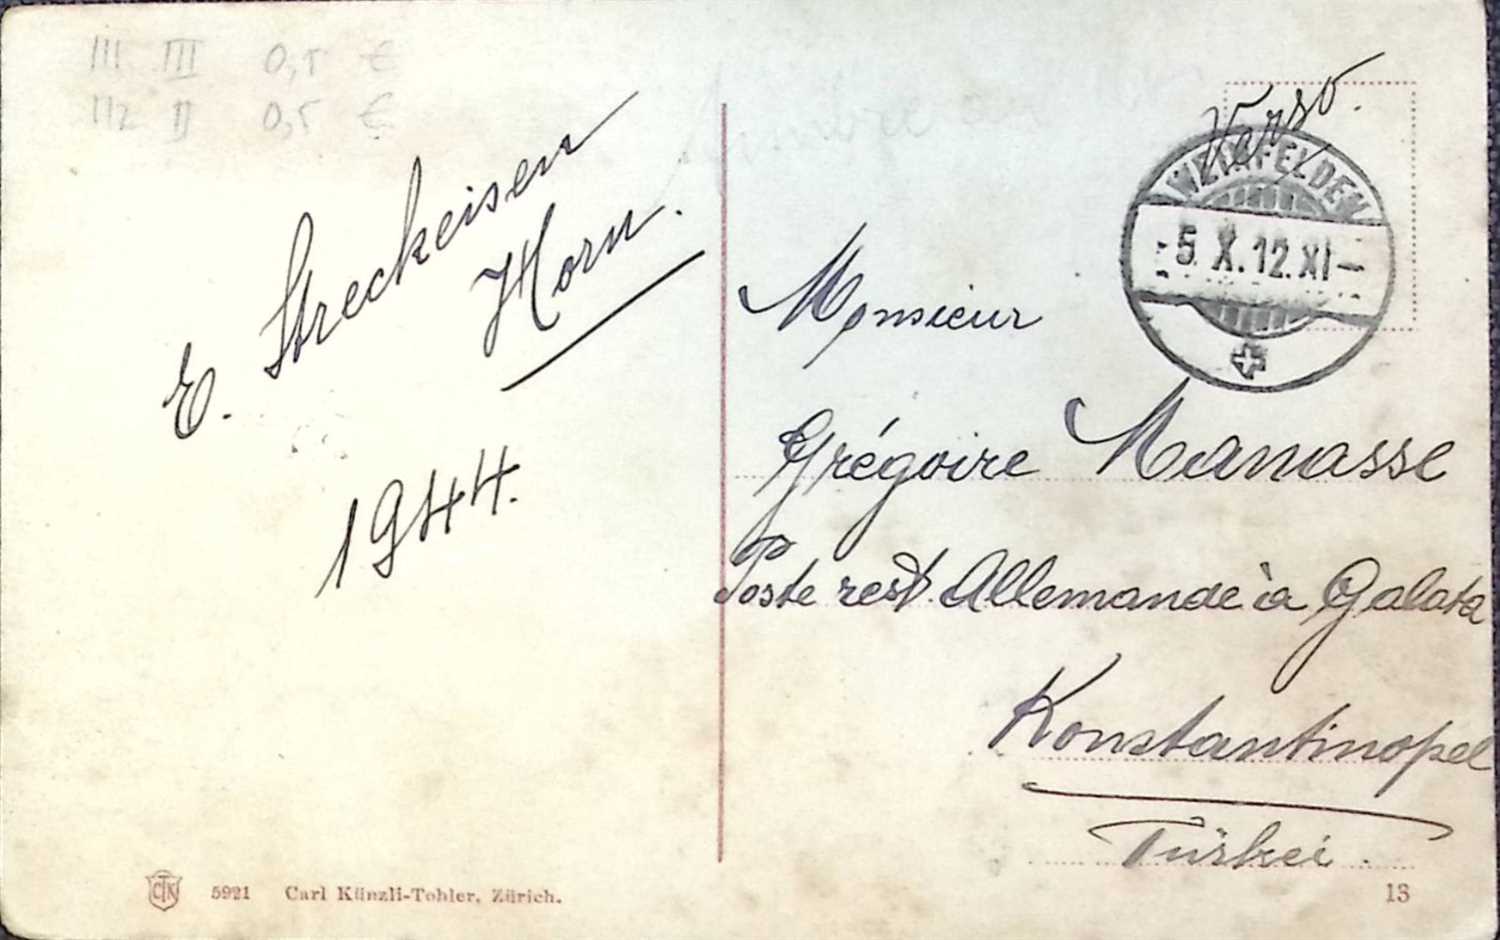 III III 0,5 €
112 II 0,5 €
E. Streckeisen
Horn.
1944.
Verso.
WEINFELDEN
-5.X.12.XI-
Monsieur
Grégoire Manasse
Poste rest. Allemande à Galata
Konstantinopel
Türkei.
CTK 5921 Carl Künzli-Tobler, Zürich.
13